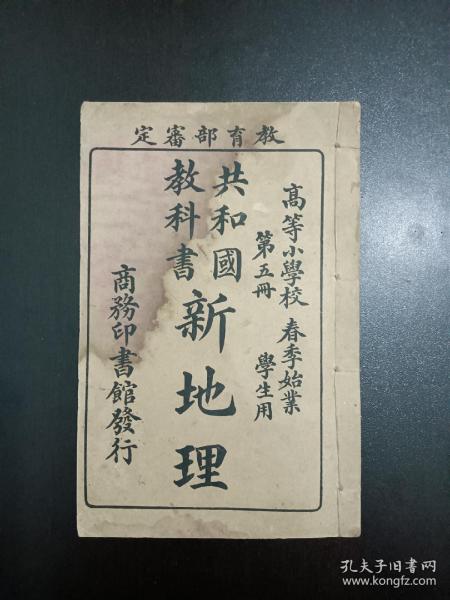 教育部審定
高等小學校 春季始業
第五冊 學生用
共和國
教科書
新地理
商務印書館發行
孔夫子旧书网
www.kongfz.com